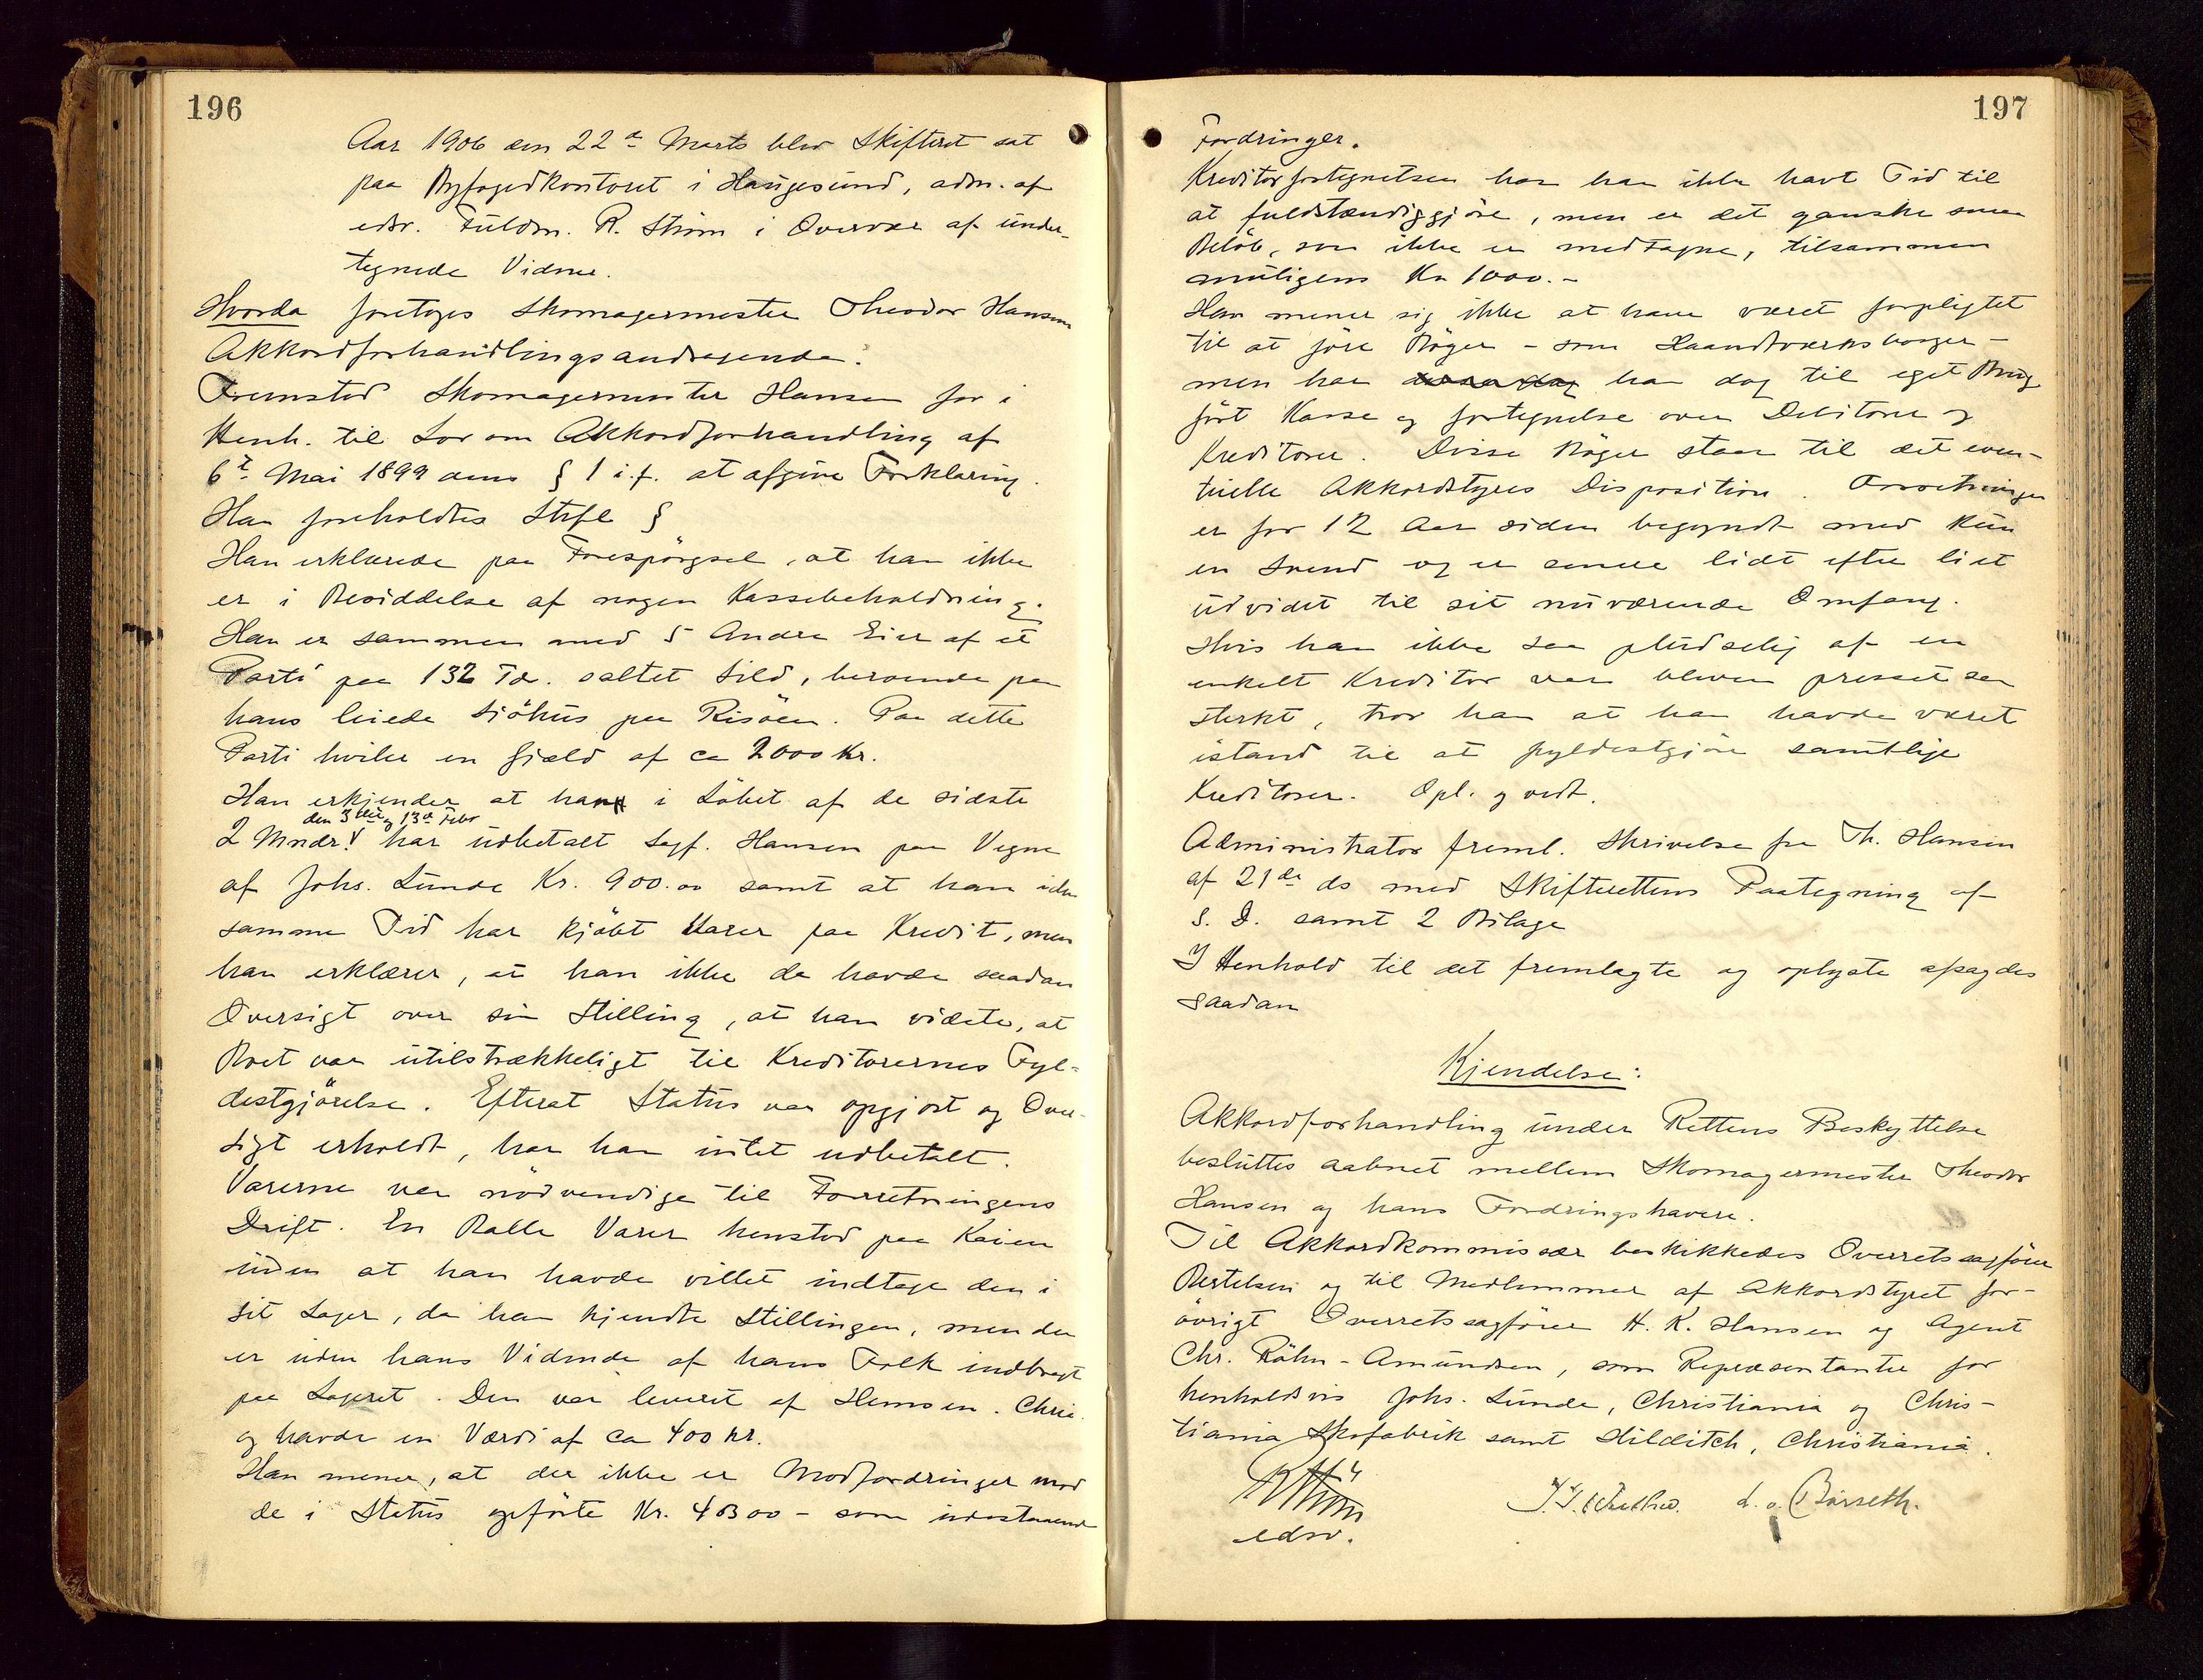 196
Aar 1906 den 22d Marts blev Skifteret sat
paa Byfogedkontoret i Haugesund, adm. af
edsv. Fuldm. R. Strøm i Overvær af under-
tegnede Vidner.
Hvorda foretoges Skomagermester Theodor Hansens
Akkordforhandlingsandragende.
Fremstod Skomagermester Hansen for i
Henh. til Lov om Akkordforhandling af
6t Mai 1899 dens § 1 i.f. at afgive Forklaring.
Han foreholdtes Strfl §
Han erklærede paa Forespörgsel, at han ikke
er i Besiddelse af nogen Kassebeholdning.
Han er sammen med 5 Andre Eier af et
Parti paa 132 Tdr. saltet Sild, beroende paa
hans leiede Sjöhus paa Risöen. Paa dette
Parti hviler en Gjæld af ca 2000 Kr.
Han erkjender at han i Löbet af de sidste
den 3die og 13de Febr
2 Mndr. har udbetalt Sagf. Hansen paa Vegne
af Johs. Lunde Kr. 900.00 samt at han i den
samme Tid har kjöbt Varer paa Kredit, men
han erklærer, at han ikke da havde saadan
Oversigt over sin Stilling, at han vidste, at
Boet var utilstrækkeligt til Kreditorernes Fyl-
destgjörelse. Efterat Status var opgjort og Over-
sigt erholdt, har han intet udbetalt.
Varerne var nödvendige til Forretningens
Drift. En Balle Varer henstod paa Kaien
uden at han havde villet indtage den i
sit Lager, da han kjendte Stillingen, men den
er uden hans Vidende af hans Folk indbragt
paa Lageret. Den var leveret af Hemsen. Chria.
og havde en Værdi af ca 400 kr.
Han mener, at der ikke er Modfordringer mod
de i Status opförte Kr. 4300 - som udestaaende
197
Fordringer.
Kreditorfortegnelsen har han ikke havt Tid til
at fuldstændiggjöre, men er det ganske smaa
Belöb, som ikke er medtagne, tilsammen
muligens Kr 1000.-
Han mener sig ikke at have været forpligtet
til at före Böger - som Haandværksborger -
men har han dog til eget Brug
fört Kasse og fortegnelse over Debitorer og
Kreditorer. Disse Böger staar til det even-
tuelle Akkordstyres Disposition. Forretningen
er for 12 Aar siden begyndt med kun
en Svend og er senere lidt efter lidt
udvidet til sit nuværende Omfang.
Hvis han ikke saa pludselig af en
enkelt Kreditor var bleven presset saa
sterkt, tror han at han havde været
istand til at fyldestgjöre samtlige
Kreditorer. Opl. og vedt.
Administrator freml. Skrivelse fra Th. Hansen
af 21de ds med Skifterettens Paategning af
s. D. samt 2 Bilage
I Henhold til det fremlagte og oplyste afsagdes
saadan
Kjendelse:
Akkordforhandling under Rettens Beskyttelse
besluttes aabnet mellem Skomagermester Theodor
Hansen og hans Fordringshavere.
Til Akkordkommissær beskikkedes Overretssagförer
Bertelsen og til Medlemmer af Akkordstyret for-
övrigt Overretssagförer H. K. Hansen og Agent
Chr. Röhn-Amundsen, som Repræsentanter for
henholdsvis Johs. Lunde, Christiania og Chris-
tiania Skofabrik samt Hilditch, Christiania.
R Strøm
edsv.